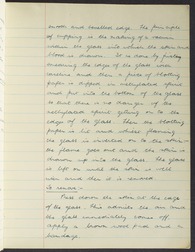 smooth and bevelled edge. The principle
of cupping is the making of a vacuum
within the glass into which the skin and
blood is drawn. It is done by first
smearing the edge of the glass with
vaseline and then a piece of blotting
paper is dipped in methylated spirit
and put into the bottom of the glass
so that there is no danger of the
methylated spirit getting on to the
edge of the glass. Then the blotting
paper is lit and whilst flaming
the glass is inverted on to the skin
the flame goes out and the skin is
drawn up into the glass. The glass
is left on until the skin is
red and then it is removed
to remove -
Press down the skin at the edge
of the glass. This admits the air and
the glass immediately comes off.
apply a warm wool pad and a
bandage.